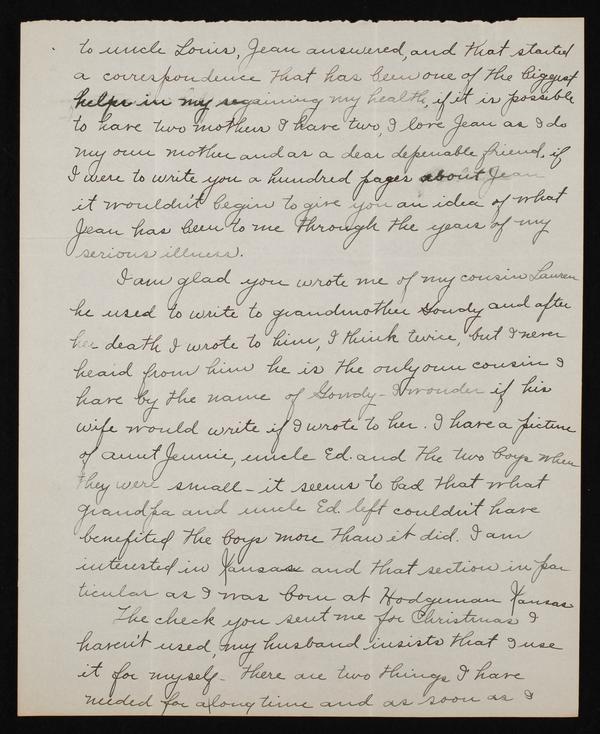 to uncle Louis, Jean answered, and that started
a correspondence that has been one of the biggest
helps in my regaining my health, if it is possible
to have two mothers I have two, I love Jean as I do
my own mother and as a dear depenable friend, if
I were to write you a hundred pages about Jean
it wouldn't begin to give you an idea of what
Jean has been to me through the years of my
serious illness.
I am glad you wrote me of my cousin Lauren
he used to write to grandmother Gowdy and after
her death I wrote to him, I think twice, but I never
heard from him he is the only own cousin I
have by the name of Gowdy - I wonder if his
wife would write if I wrote to her. I have a picture
of aunt Jennie, uncle Ed. and the two boys when
they were small - it seems to bad that what
grandpa and uncle Ed. left couldn't have
benefited the boys more than it did. I am
interested in Kansas and that section in par
ticular as I was born at Hodgeman Kansas
The check you sent me for Christmas I
haven't used, my husband insists that I use
it for myself - there are two things I have
needed for a long time and as soon as I